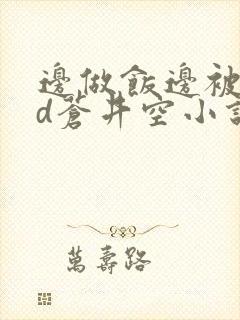 邊做飯邊被
d蒼井空小說
萬壽路